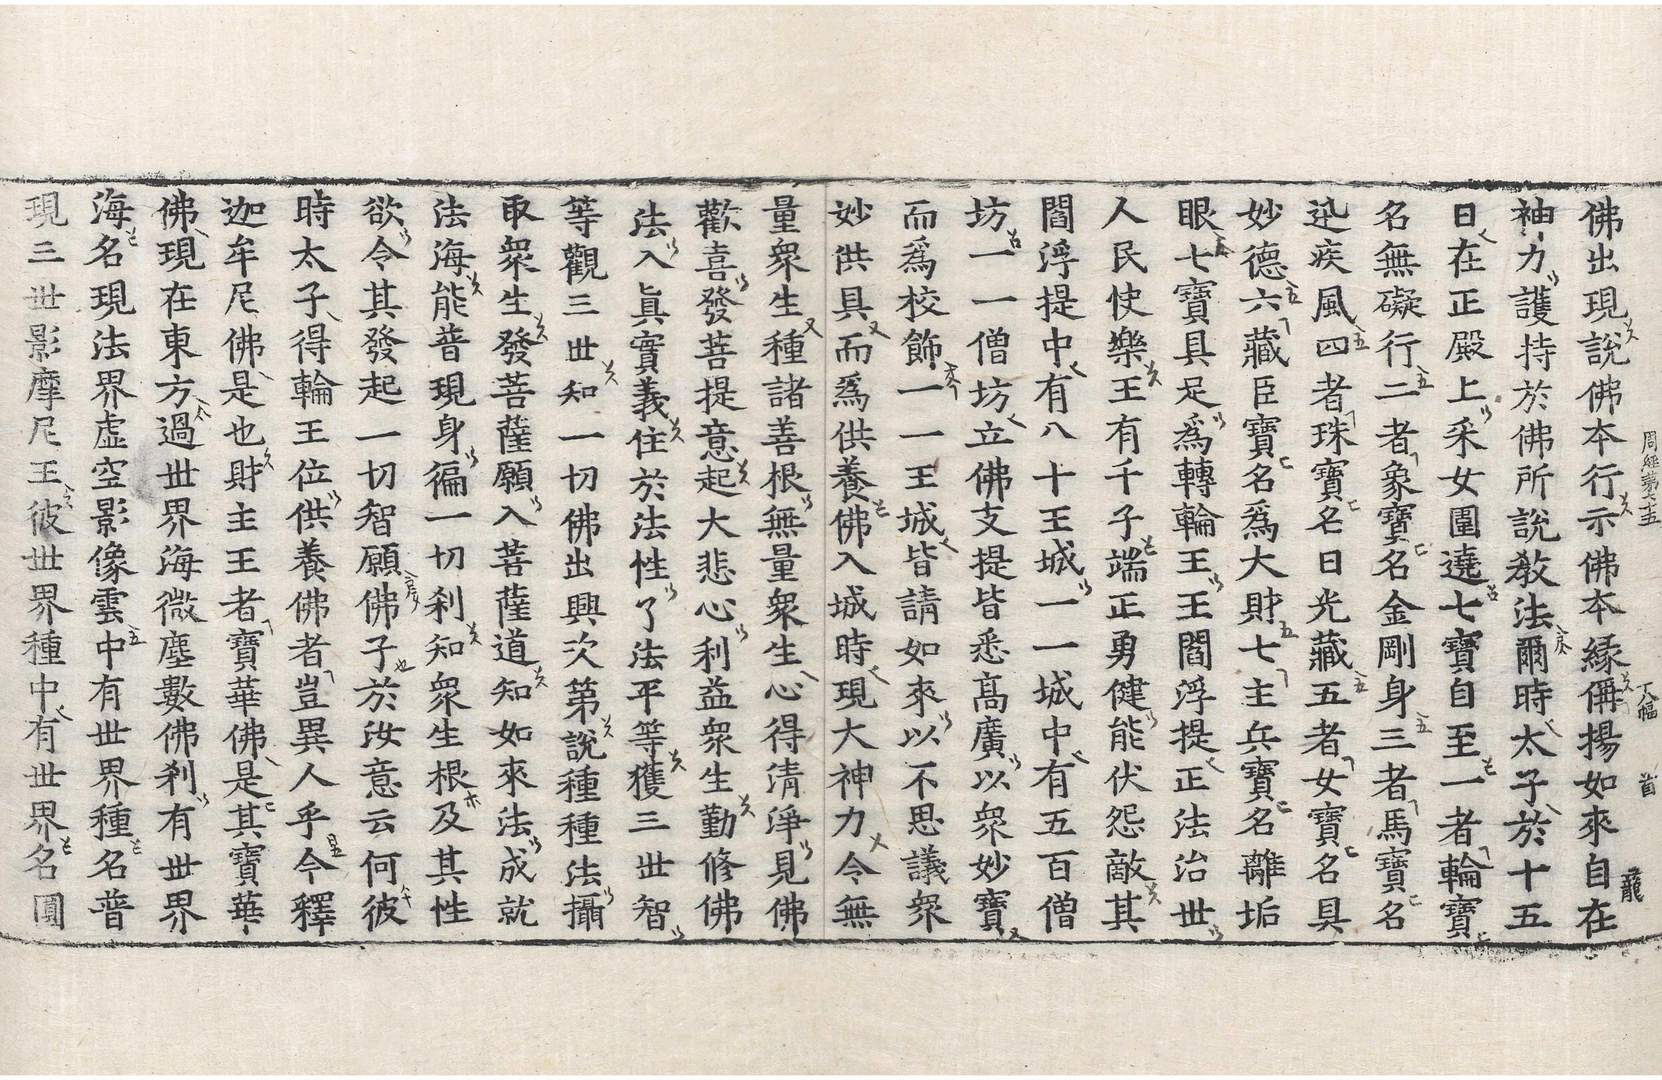 周經第六十五
丈 八幅
首
龍
佛出現說佛本行示佛本緣偁揚如來自在
神力護持於佛所說教法爾時太子於十五
日在正殿上采女圍遶七寶自至一者輪寶
名無礙行二者象寶名金剛身三者馬寶名
迅疾風四者珠寶名日光藏五者女寶名具
妙德六藏臣寶名爲大財七主兵寶名離垢
眼七寶具足爲轉輪王王閻浮提正法治世
人民快樂王有千子端正勇健能伏怨敵其
閻浮提中有八十王城一一城中有五百僧
坊一一僧坊立佛支提皆悉高廣以眾妙寶
而爲校飾一一王城皆請如來以不思議眾
妙供具而爲供養佛入城時現大神力令無
量眾生種諸善根無量眾生心得清淨見佛
歡喜發菩提意起大悲心利益眾生勤修佛
法入真實義住於法性了法平等獲三世智
等觀三世知一切佛出興次第說種種法攝
取眾生發菩薩願入菩薩道知如來法成就
法海能普現身徧一切刹知眾生根及其性
欲令其發起一切智願佛子於汝意云何彼
時太子得輪王位供養佛者豈異人乎今釋
迦牟尼佛是也財主王者寶華佛是其寶華
佛現在東方過世界海微塵數佛刹有世界
海名現法界虛空影像雲中有世界種名普
現三世影摩尼王彼世界種中有世界名圓